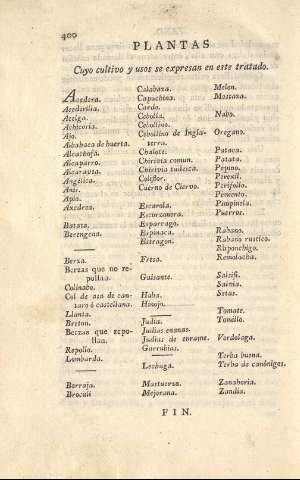 400
PLANTAS
Cuyo cultivo y usos se expresan en este tratado.
Acedera.
Acedirilla.
Acelga.
Achicoria.
Ajo.
Albahaca de huerta.
Alcachofa.
Alcaparro.
Alcaravea.
Angélica.
Anís.
Apio.
Axedrea.
Batata.
Berengena.
Berza.
Berzas que no re-
pollan.
Colinabo.
Col de asa de can-
taro ó castellana.
Llanta.
Breton.
Berzas que repo-
llan.
Repollo.
Lombarda.
Borraja.
Broculi
Calabaza.
Capuchina.
Cardo.
Cebolla.
Cebollino.
Cebollino de Ingla-
terra.
Chalote.
Chirivia comun.
Chirivia tudesca.
Coliflor.
Cuerno de Ciervo.
Escarola.
Escorzonera.
Esparrago.
Espinaca
Estragon.
Fresa.
Guisante.
Haba.
Hinojo.
Judía.
Judías enanas.
Judías de enrame.
Garrubias.
Lechuga.
Mastuerzo.
Mejorana.
Melon.
Mostaza.
Nabo.
Oregano.
Pataca.
Patata.
Pepino.
Perexil.
Perifollo.
Pimiento.
Pimpinela.
Puerros.
Rabano.
Rabano rustico.
Ruponchigo.
Remolacha.
Salsifi.
Setas.
Tomate.
Tomillo.
Verdolaga.
Yerba buena.
Yerba de canónigos.
Zanahoria.
Zandía.
FIN.